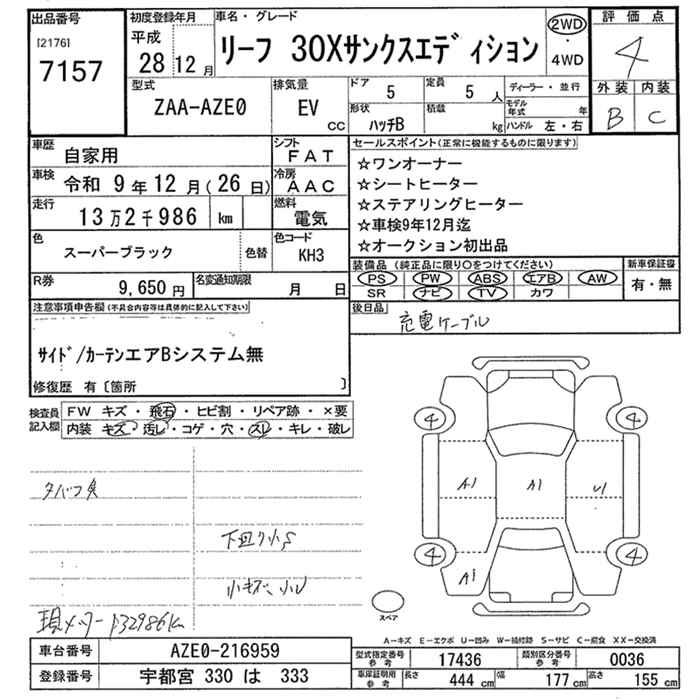 出品番号
[2176]
7157
初度登録年月
平成
28 12 月
車名・グレード
リーフ 30Xサンクスエディション
2WD
・
4WD
評価点
4
外装 内装
B C
型式
ZAA-AZE0
排気量
EV
CC
ドア
5
定員
5 人
形状
ハッチB
積載
kg
ディーラー・並行
モデル年式 年
ハンドル 左・右
車歴
自家用
シフト
FAT
車検
令和 9 年 12 月 ( 26 日)
冷房
AAC
走行
13 万 2 千 986 km
燃料
電気
色
スーパーブラック
色替
色コード
KH3
R券
9,650 円
名変通知期限
月 日
セールスポイント(正常に機能するものに限ります)
☆ワンオーナー
☆シートヒーター
☆ステアリングヒーター
☆車検9年12月迄
☆オークション初出品
装備品 (純正品に限り○をつけてください)
PS PW ABS エアB AW
SR ナビ TV カワ
新車保証書
有・無
後日品
充電ケーブル
注意事項申告欄 (不具合内容等は具体的に記入して下さい)
サイド/カーテンエアBシステム無
修復歴 有 [箇所 ]
検査員記入欄
FW キズ・飛石・ヒビ割・リペア跡・×要
内装 キズ・汚し・コゲ・穴・スレ・キレ・破レ
タバコ臭
下廻り小S
小キズ、小U
現メーター132986km
4 4
A1 A1 U1
4 4
A1
スペア
A-キズ E-エクボ U-凹み W-補修跡 S-サビ C-腐食 XX-交換済
車台番号
AZE0-216959
登録番号
宇都宮 330 は 333
型式指定番号
参考
17436
類別区分番号
参考
0036
車庫証明用
参考
長さ 444 cm
幅 177 cm
高さ 155 cm